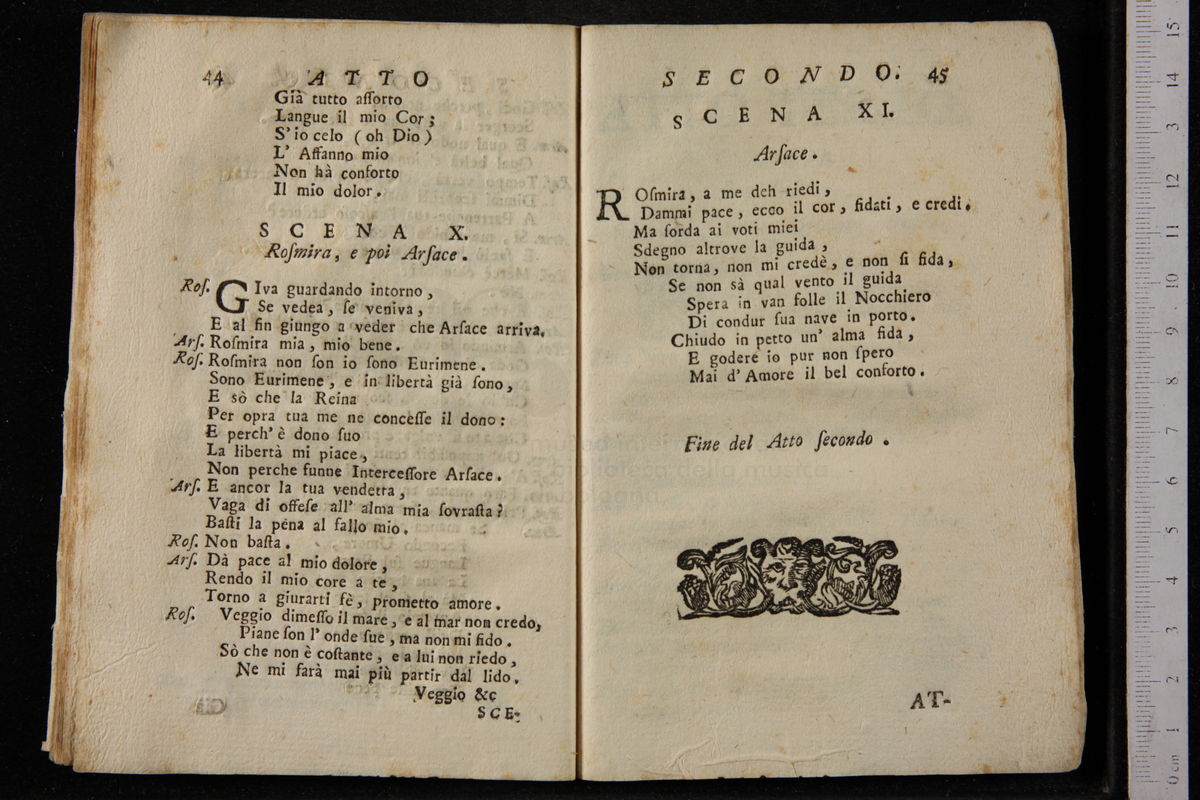 44 ATTO
Già tutto aſſorto
Langue il mio Cor;
S'io celo (oh Dio)
L' Affanno mio
Non hà conforto
Il mio dolor.
SCENA X.
Roſmira, e poi Arſace.
Roſ. GIva guardando intorno,
Se vedea, ſe veniva,
E al fin giungo a veder che Arſace arriva.
Arſ. Roſmira mia, mio bene.
Roſ. Roſmira non ſon io ſono Eurimene.
Sono Eurimene, e in libertà già ſono,
E sò che la Reina
Per opra tua me ne conceſſe il dono:
E perch' è dono ſuo
La libertà mi piace,
Non perche funne Interceſſore Arſace.
Arſ. E ancor la tua vendetta,
Vaga di offeſe all' alma mia ſovraſta?
Baſti la pena al fallo mio.
Roſ. Non baſta.
Arſ. Dà pace al mio dolore,
Rendo il mio core a te,
Torno a giurarti fè, prometto amore.
Roſ. Veggio dimeſſo il mare, e al mar non credo,
Piane ſon l' onde ſue, ma non mi fido.
Sò che non è coſtante, e a lui non riedo,
Ne mi farà mai più partir dal lido.
Veggio &c
SCE-
SECONDO. 45
SCENA XI.
Arſace.
ROſmira, a me deh riedi,
Dammi pace, ecco il cor, fidati, e credi.
Ma ſorda ai voti miei
Sdegno altrove la guida,
Non torna, non mi credè, e non ſi fida,
Se non sà qual vento il guida
Spera in van folle il Nocchiero
Di condur ſua nave in porto.
Chiudo in petto un' alma fida,
E godere io pur non ſpero
Mai d' Amore il bel conforto.
Fine del Atto ſecondo.
AT-
biblioteca della musica
bologna
0 cm 1 2 3 4 5 6 7 8 9 10 11 12 13 14 15